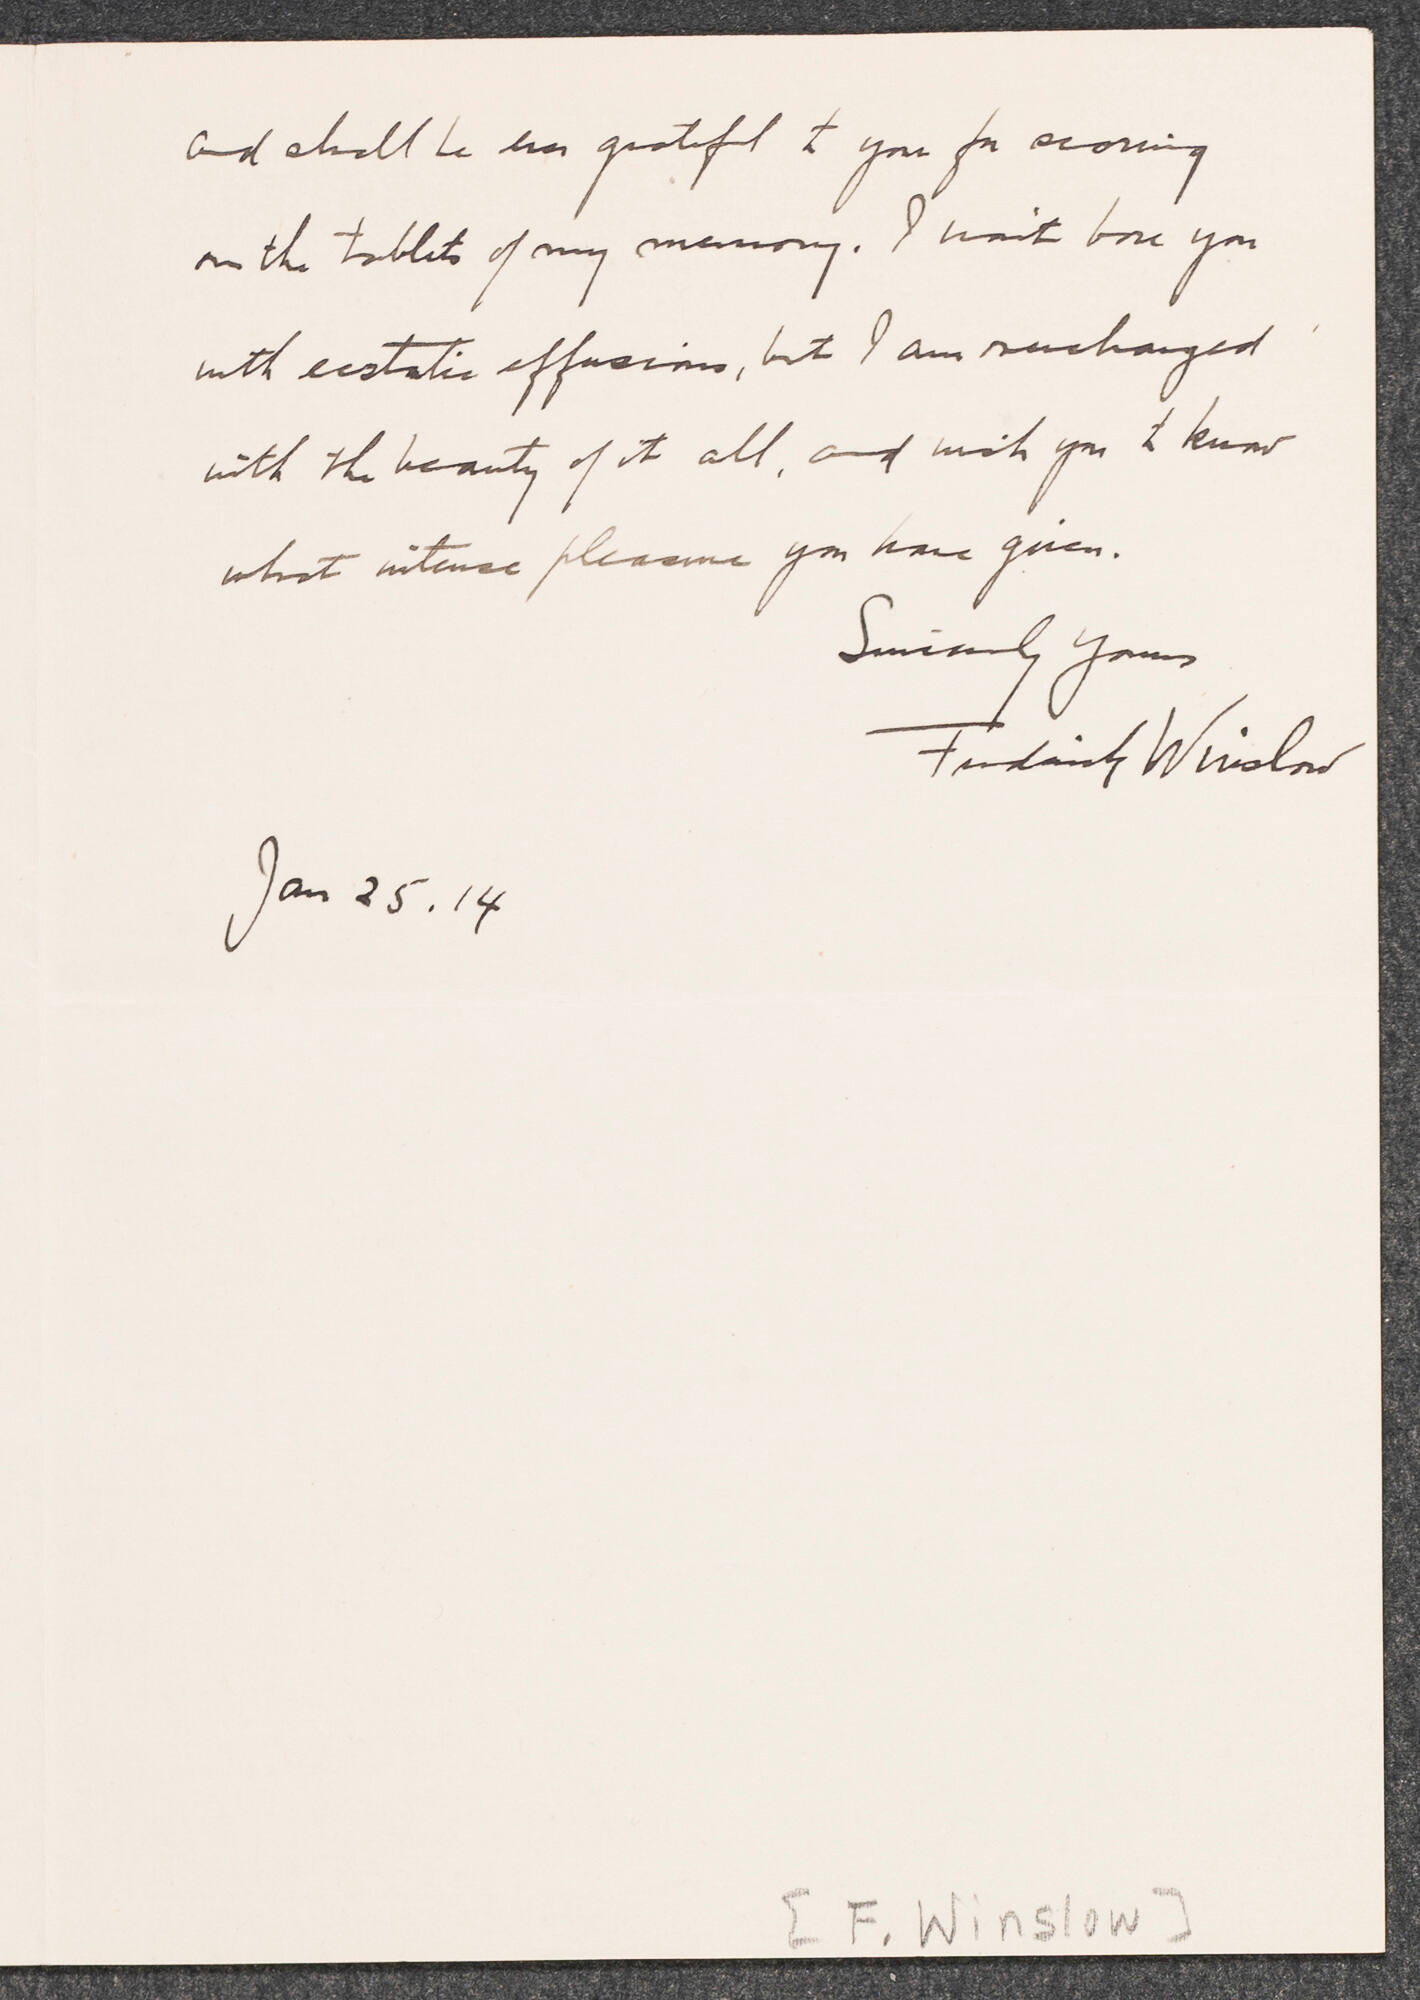 and shall be ever grateful to you for scoring
on the tablets of my memory. I wont bore you
with ecstatic effusions, but I am
with the beauty of it all, and wish you to know
what intense pleasure you have given.
Sincerely yours
Frederick Winslow
Jan 25.14
[F. Winslow]